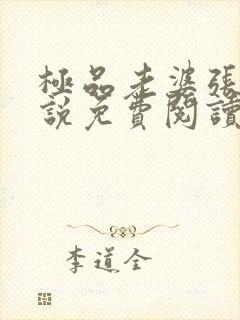 極品老婆張
說免費閱讀
李道全